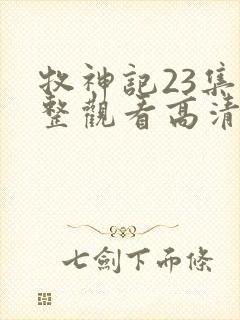 牧神記23集
整觀看高清
七劍下而條